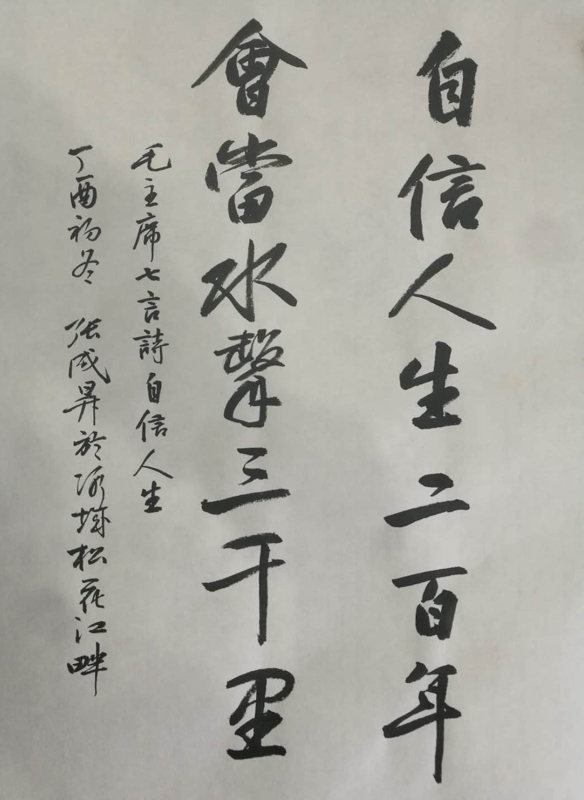 自信人生二百年
會當水擊三千里
毛主席七言詩自信人生
丁酉初冬 张成昇於冰城松花江畔